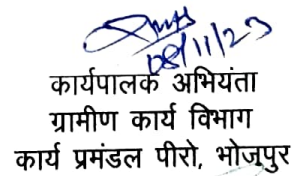 08/11/23
कार्यपालक अभियंता
ग्रामीण कार्य विभाग
कार्य प्रमंडल पीरो, भोजपुर